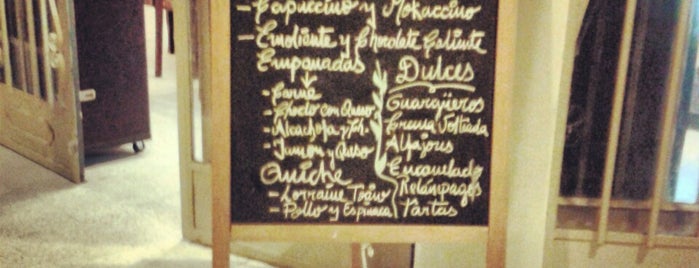 - Capuccino y Mokaccino
- Emoliente y Chocolate Caliente
Empanadas
- Carne
- Choclo con Queso
- Alcachofa y
- Jamón y Queso
Quiche
- Lorraine
- Pollo y Espinaca
Dulces
Guargüeros
Crema Volteada
Alfajores
Encanelado
Relámpagos
Tartas